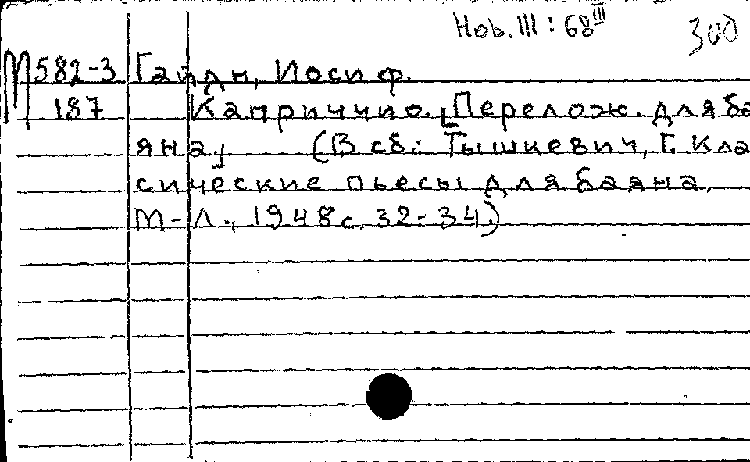 Нов. III : 68 III
300
М 582-3 Гайдн, Иосиф.
187 Каприччио. [Перелож. для ба
яна] (В сб.: Тышкевич, Г. Клас
сические пьесы для баяна.
М-Л., 1948 с. 32-34.)